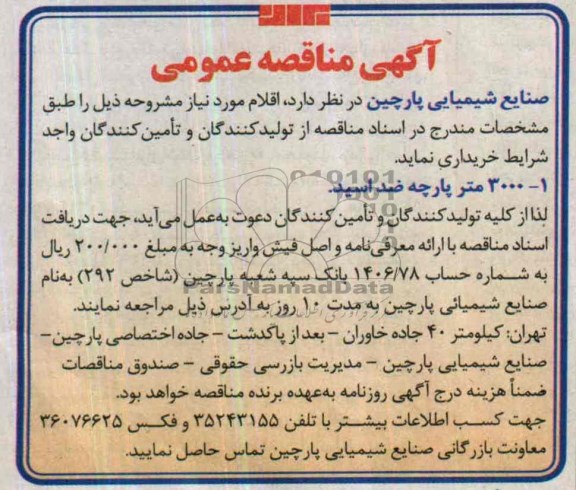 آگهی مناقصه عمومی
صنایع شیمیایی پارچین در نظر دارد، اقلام مورد نیاز مشروحه ذیل را طبق
مشخصات مندرج در اسناد مناقصه از تولیدکنندگان و تأمین‌کنندگان واجد
شرایط خریداری نماید.
۱- ۳۰۰۰ متر پارچه ضد اسید.
لذا از کلیه تولیدکنندگان و تأمین‌کنندگان دعوت به‌عمل می‌آید، جهت دریافت
اسناد مناقصه با ارائه معرفی‌نامه و اصل فیش واریز وجه به مبلغ ۲۰۰/۰۰۰ ریال
به شماره حساب ۱۴۰۶/۷۸ بانک سپه شعبه پارچین (شاخص ۲۹۲) به‌نام
ParsNamadData
صنایع شیمیائی پارچین به مدت ۱۰ روز به آدرس ذیل مراجعه نمایند.
تهران: کیلومتر ۴۰ جاده خاوران - بعد از پاکدشت - جاده اختصاصی پارچین-
صنایع شیمیایی پارچین - مدیریت بازرسی حقوقی - صندوق مناقصات
ضمناً هزینه درج آگهی روزنامه به‌عهده برنده مناقصه خواهد بود.
جهت کسب اطلاعات بیشتر با تلفن ۳۵۲۴۳۱۵۵ و فکس ۳۶۰۷۶۶۲۵
معاونت بازرگانی صنایع شیمیایی پارچین تماس حاصل نمایید.